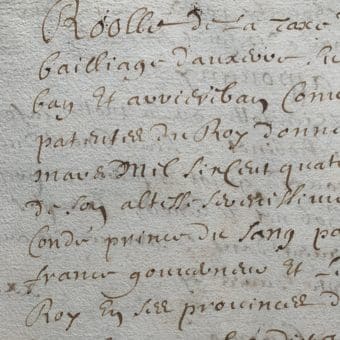 Roolle de La taxe
bailliage d'auxerre
ban Et arriereban Com
patentes du Roy donn
mars Mil six Cent quat
de son altesse serenissim
Condé prince du sang p
france gouverneur Et L
Roy En ses provinces d